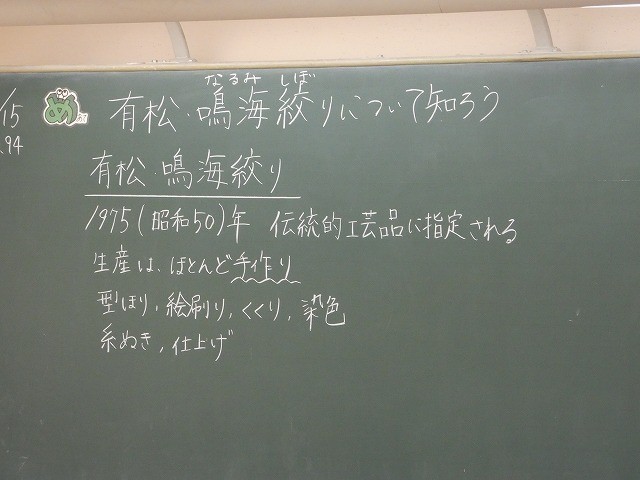 /15
.94
め
なるみ しぼ
有松・鳴海絞りについて知ろう
有松・鳴海絞り
1975(昭和50)年 伝統的工芸品に指定される
生産は、ほとんど手作り
型ほり,絵刷り,くくり,染色
糸ぬき,仕上げ